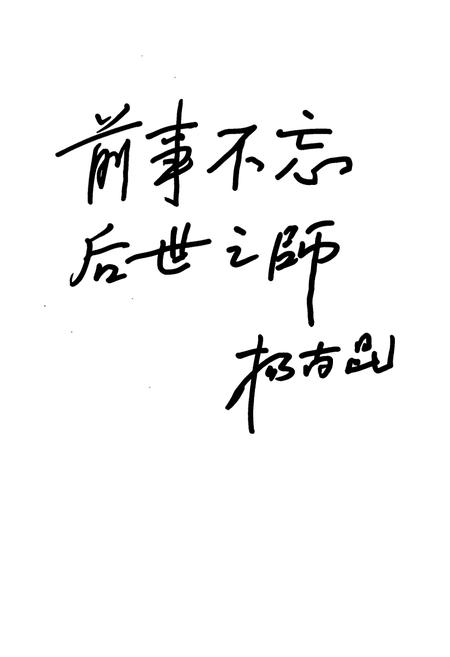 前事不忘
后世之師
杨